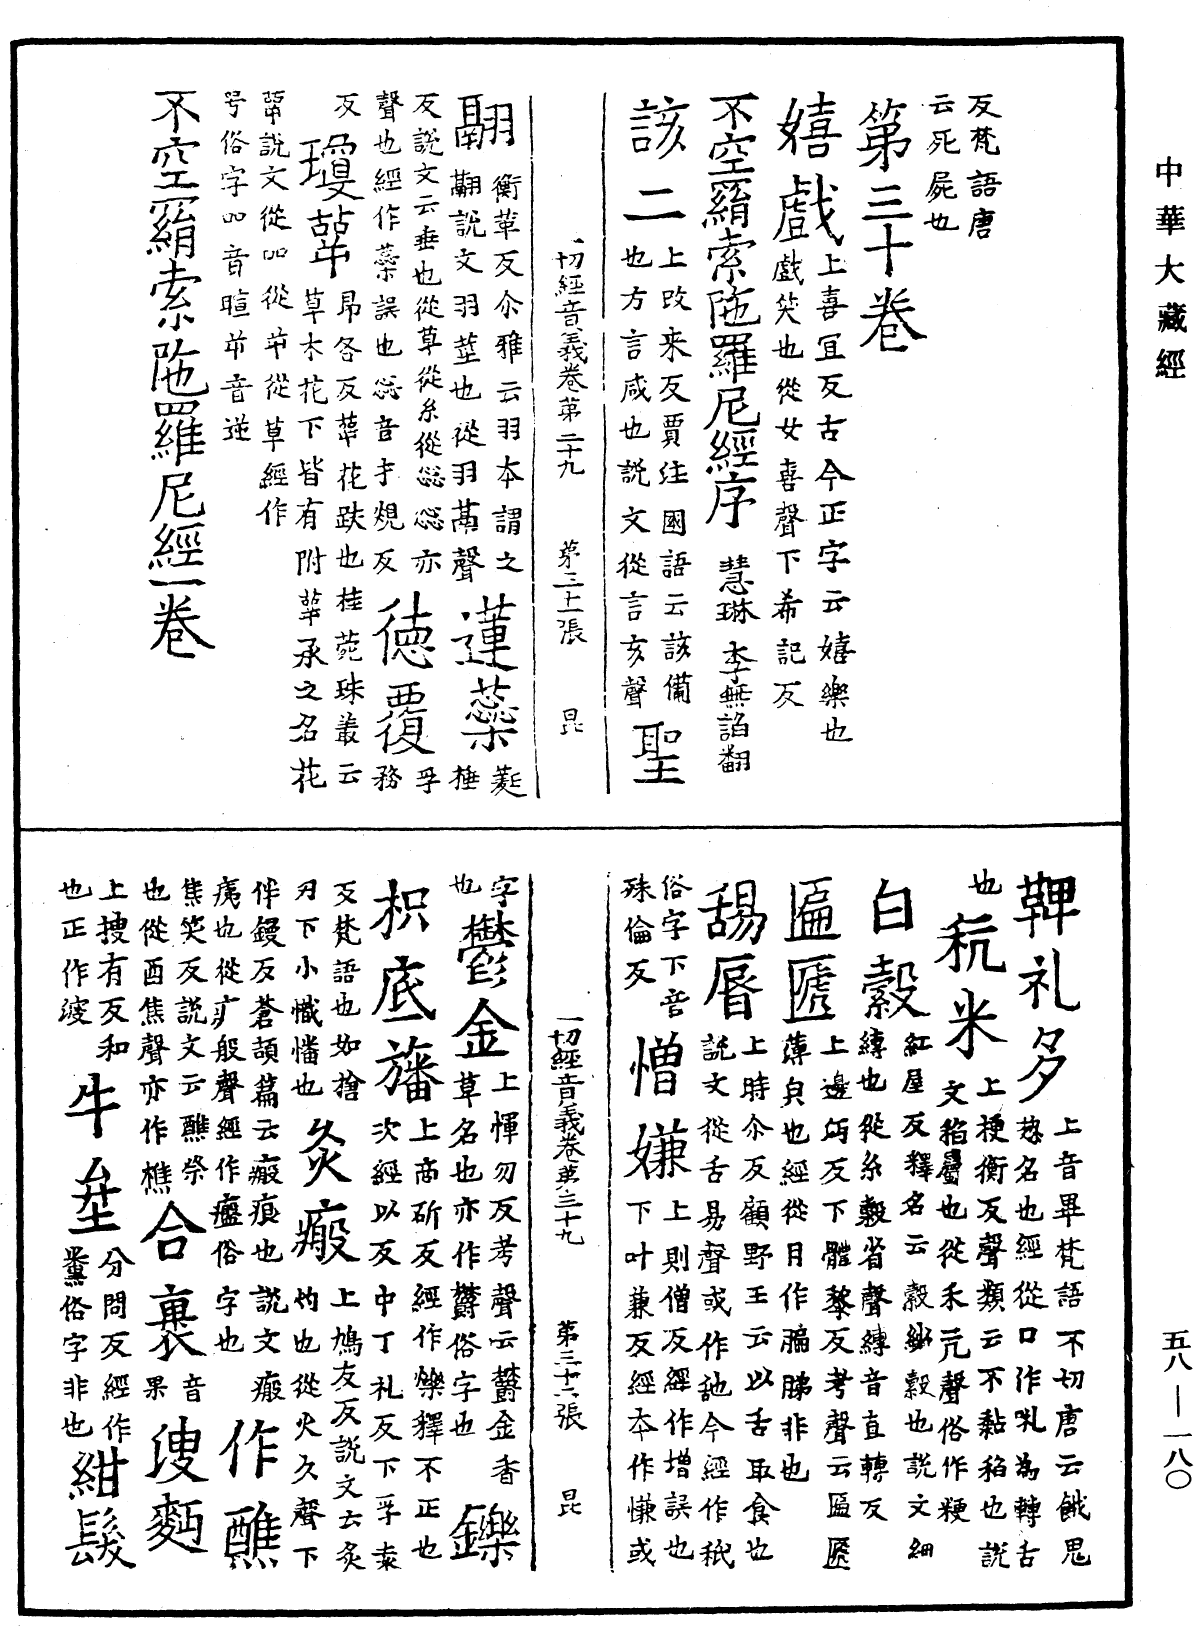 中華大藏經
五八—一八〇
反梵語唐
云死屍也
第三十卷
嬉戲 上喜宜反古今正字云嬉樂也
戲笑也從女喜聲下希記反
不空羂索陁羅尼經序 慧琳 李無諂翻
該二 上改來反賈注國語云該備
也方言咸也說文從言亥聲 聖
一切經音義卷第三十九 第三十一張 昆
翮 衡革反尒雅云羽本謂之
翮說文羽莖也從羽鬲聲 蓮蘂 蕤捶
反說文云垂也從草從糸從惢惢亦
聲也經作蘂誤也惢音才規反 徳覆 孚務
反 瓊蕚 昂各反蕚花趺也桂菀珠叢云
草木花下皆有附蕚承之名花
蕚說文從吅從屰從草經作
号俗字吅音暄屰音逆
不空羂索陁羅尼經一卷
鞞礼多 上音畢梵語不切唐云餓鬼
惣名也經從口作𠯋為轉舌
也 秔米 上梗衡反聲類云不黏稻也說
文稻屬也從禾亢聲俗作粳
白縠 紅屋反釋名云縠紗縠也說文細
縳也從糸㱿省聲縳音直轉反
匾㔸 上邊沔反下體黎反考聲云匾㔸
薄皃也經從月作膈䏲非也
舓脣 上時尒反顧野王云以舌取食也
說文從舌易聲或作䑛今經作秖
俗字下音
殊倫反 憎嫌 上則僧反經作增誤也
下叶兼反經本作慊或
一切經音義卷第三十九 第三十六張 昆
字
也 鬱金 上惲勿反考聲云鬱金香
草名也亦作欝俗字也 鑠
枳底 上商斫反經作爍釋不正也
次經以反中丁礼反下孚袁
反梵語也如搶
刃下小幟憣也 灸瘢 上鳩友反說文云灸
灼也從火久聲下
伴鏝反蒼頡篇云瘢痕也說文瘢
痍也從疒般聲經作癍俗字也 作醮
焦笑反說文云醮祭
也從酉焦聲亦作樵 合裹 音果 溲麪
上搜有反和
也正作溲 牛坌 分問反經作
糞俗字非也 紺髮